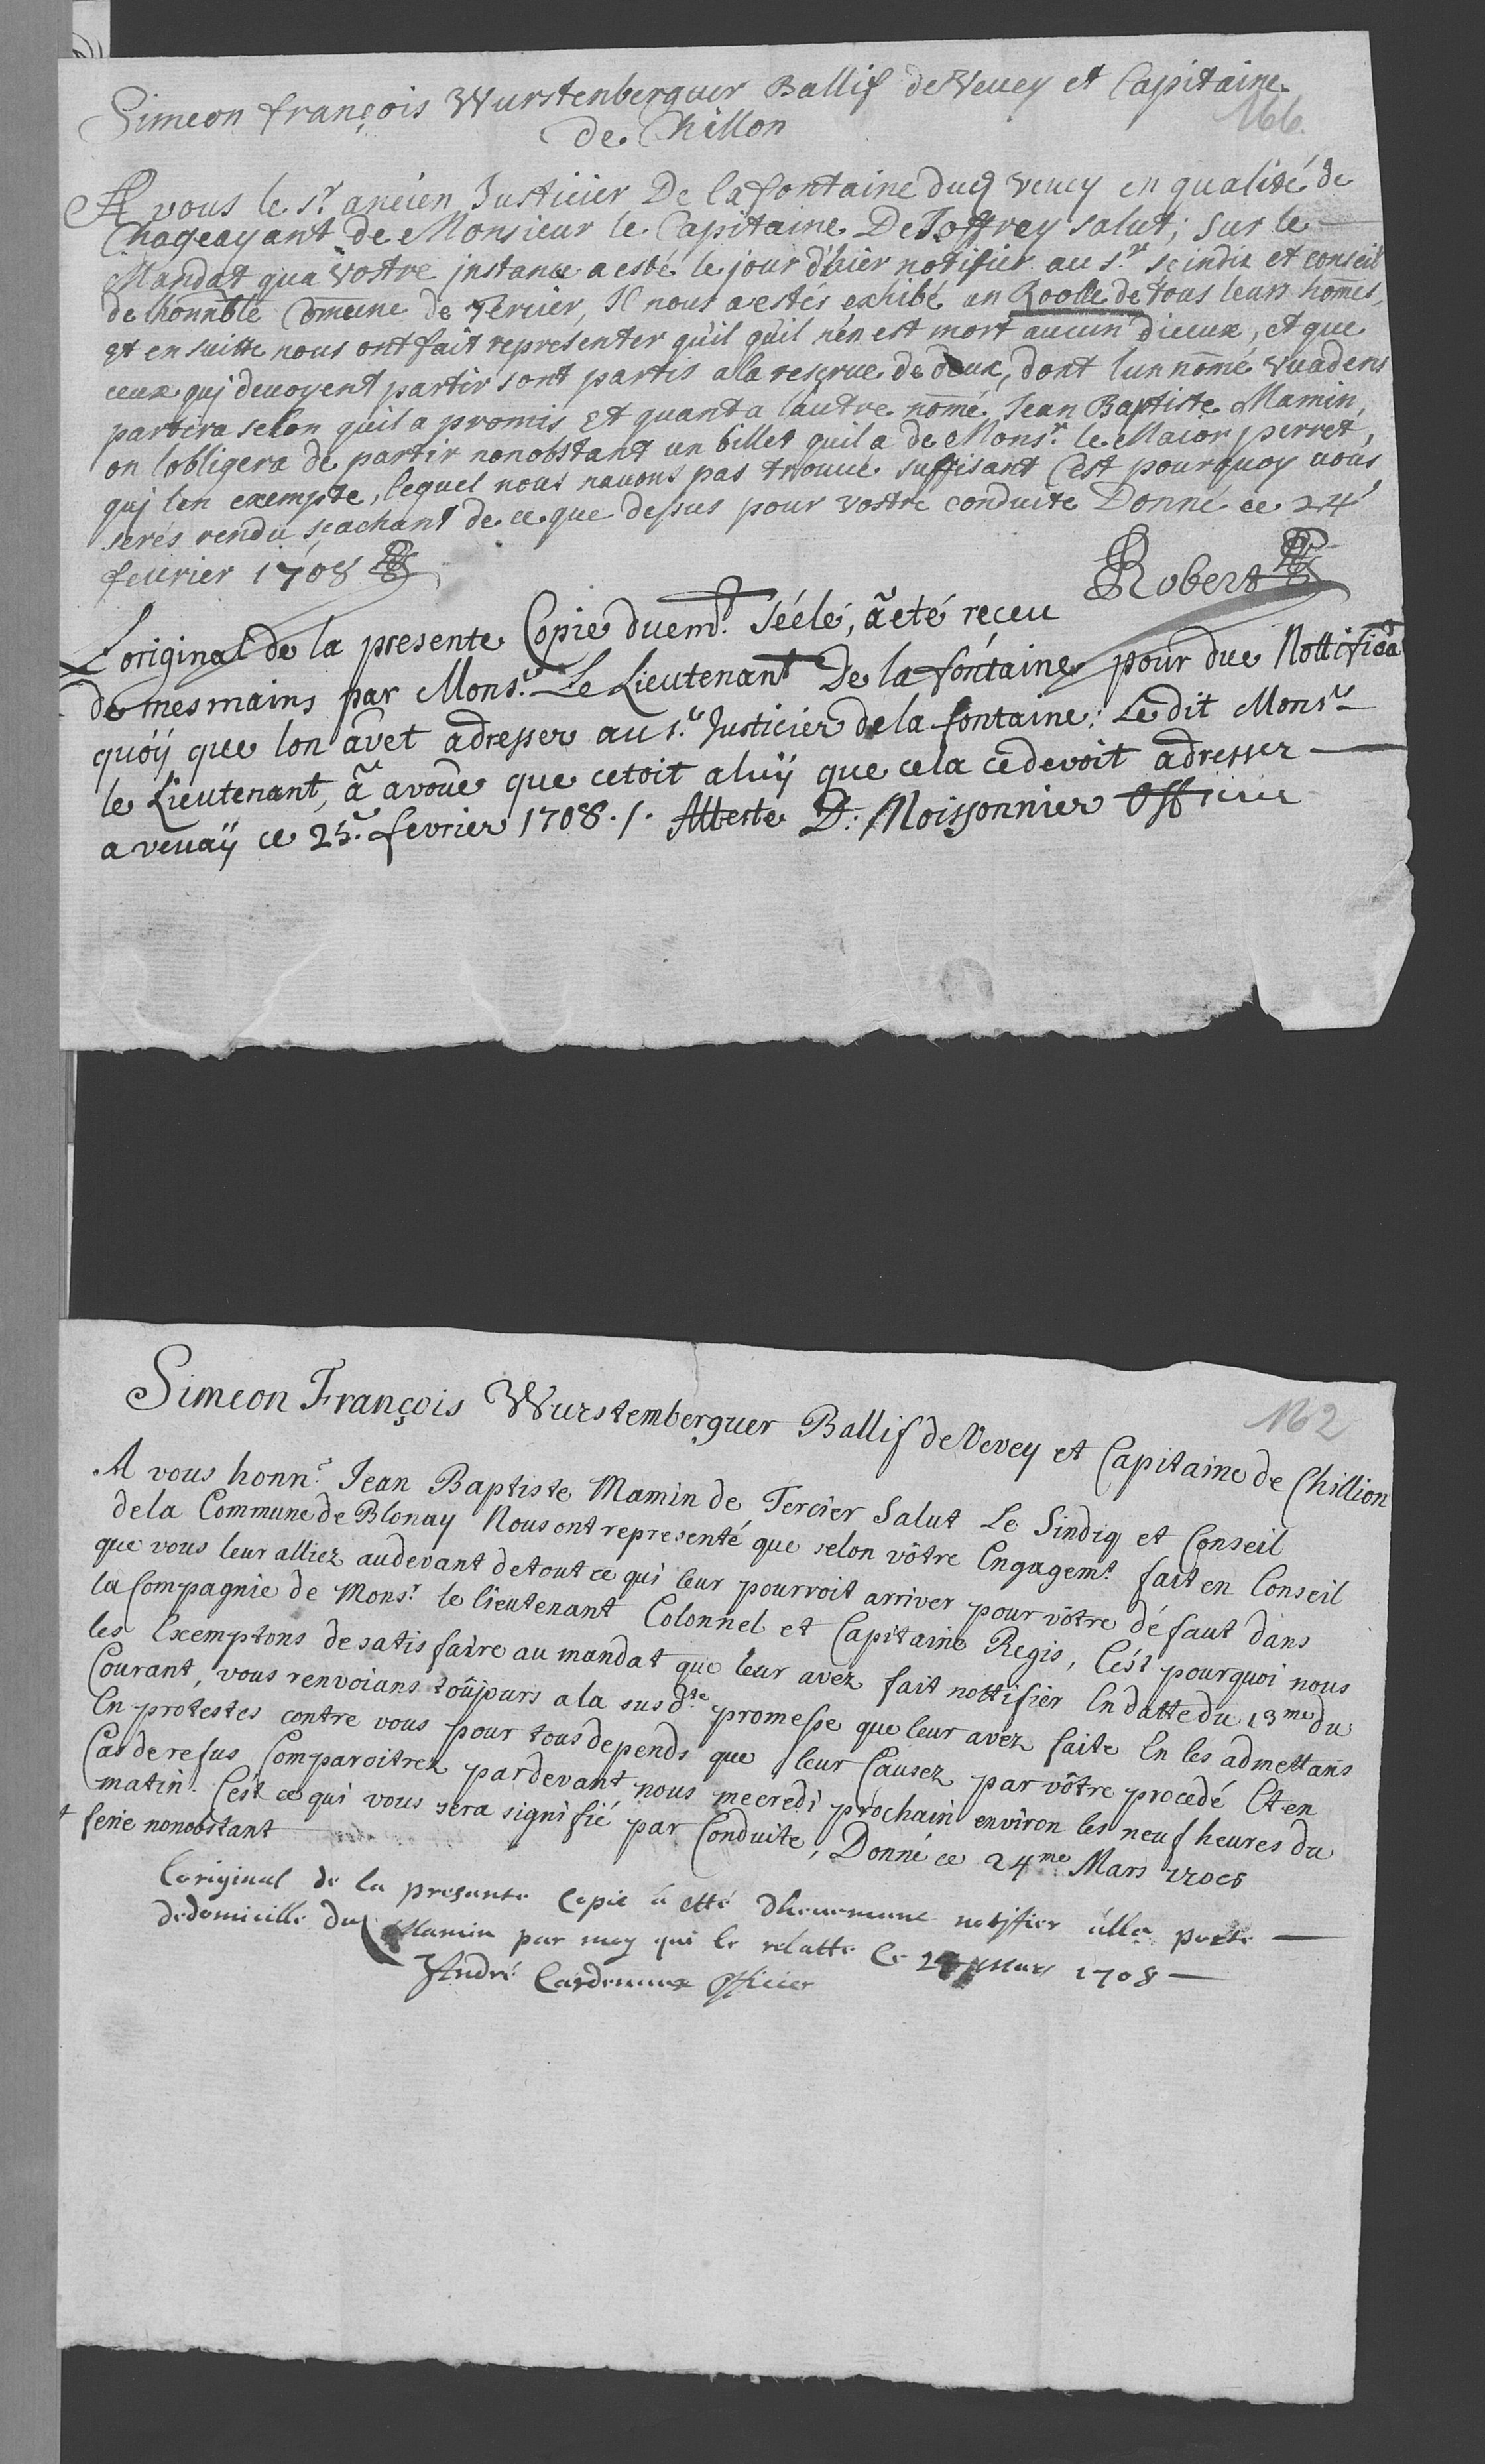 Simeon françois Wurstenberguer Ballif de Vevey et Capitaine
de Chillon
166.
A vous le sr. ancien Justicier De la fontaine dud vevey en qualité de
Chageayant de Monsieur le Capitaine De Joffrey salut; sur le
Mandat qua vostre instance a esté le jour d'hier notifier au sr. scindix et conseil
de lhonnble Comune de Tercier, Il nous a estés exhibé un Roolle de tous leurs homes,
et en suitte nous ont fait representer qu'il qu'il n'en est mort aucun d'ieux, et que
ceux qui devoyent partir sont partis a la reserve de deux, dont lun nomé vuadens
partira selon quil a promis Et quant a lautre nomé Jean Baptiste Mamin,
on lobligera de partir nonobstant un billet quil a de Monsr. le Maior perret,
quj len exempte, lequel nous navons pas trouvé suffisant C'est pourquoy vous
serés rendu sçachant de ce que dessus pour vostre conduite Donné ce 24e
fevrier 1708
Robert
L'original de la presente Copie duemt. séélé, a eté receu
de mes mains par Monsr. Le Lieutenant De la fontaine pour due Nottifica
quoÿ que lon avet adresser au sr. Justicier de la fontaine: Ledit Monsr
le Lieutenant, a avoué que cetoit a luÿ que cela ce devoit adresser
a vevaÿ ce 25e. fevrier 1708./. Atteste D: Moissonnier Officier
Simeon François Wurstemberguer Ballif de Vevey et Capitaine de Chillion
162
A vous honn.e Jean Baptiste Mamin de Tercier Salut Le Sindiq et Conseil
de la Commune de Blonay Nous ont representé que selon vôtre Engagemt. fait en Conseil
que vous leur alliez au devant de tout ce qui leur pourroit arriver pour vôtre défaut dans
la Compagnie de Monsr. le lieutenant Colonnel et Capitaine Regis, C'est pourquoi nous
les Exemptons de satisfaire au mandat que leur avez fait nottifier En datte du 13me du
Courant, vous renvoians toûjours a la susdte promesse que leur avez faite En les admettans
En protestes contre vous pour tous depends que leur Causez par vôtre procedé Et en
Cas de refus Comparoitrez pardevant nous mecredi prochain environ les neuf heures du
matin. C'est ce qui vous sera signifié par Conduite, Donné ce 24me Mars 1708
+ ferie nonobstant
Loriginal de la presante Copie a etté dhenemenc notiffier alla porte
de domicille dud Mamin par moy qui le relatte Ce 24 Mars 1708
André Cardinaux Officier